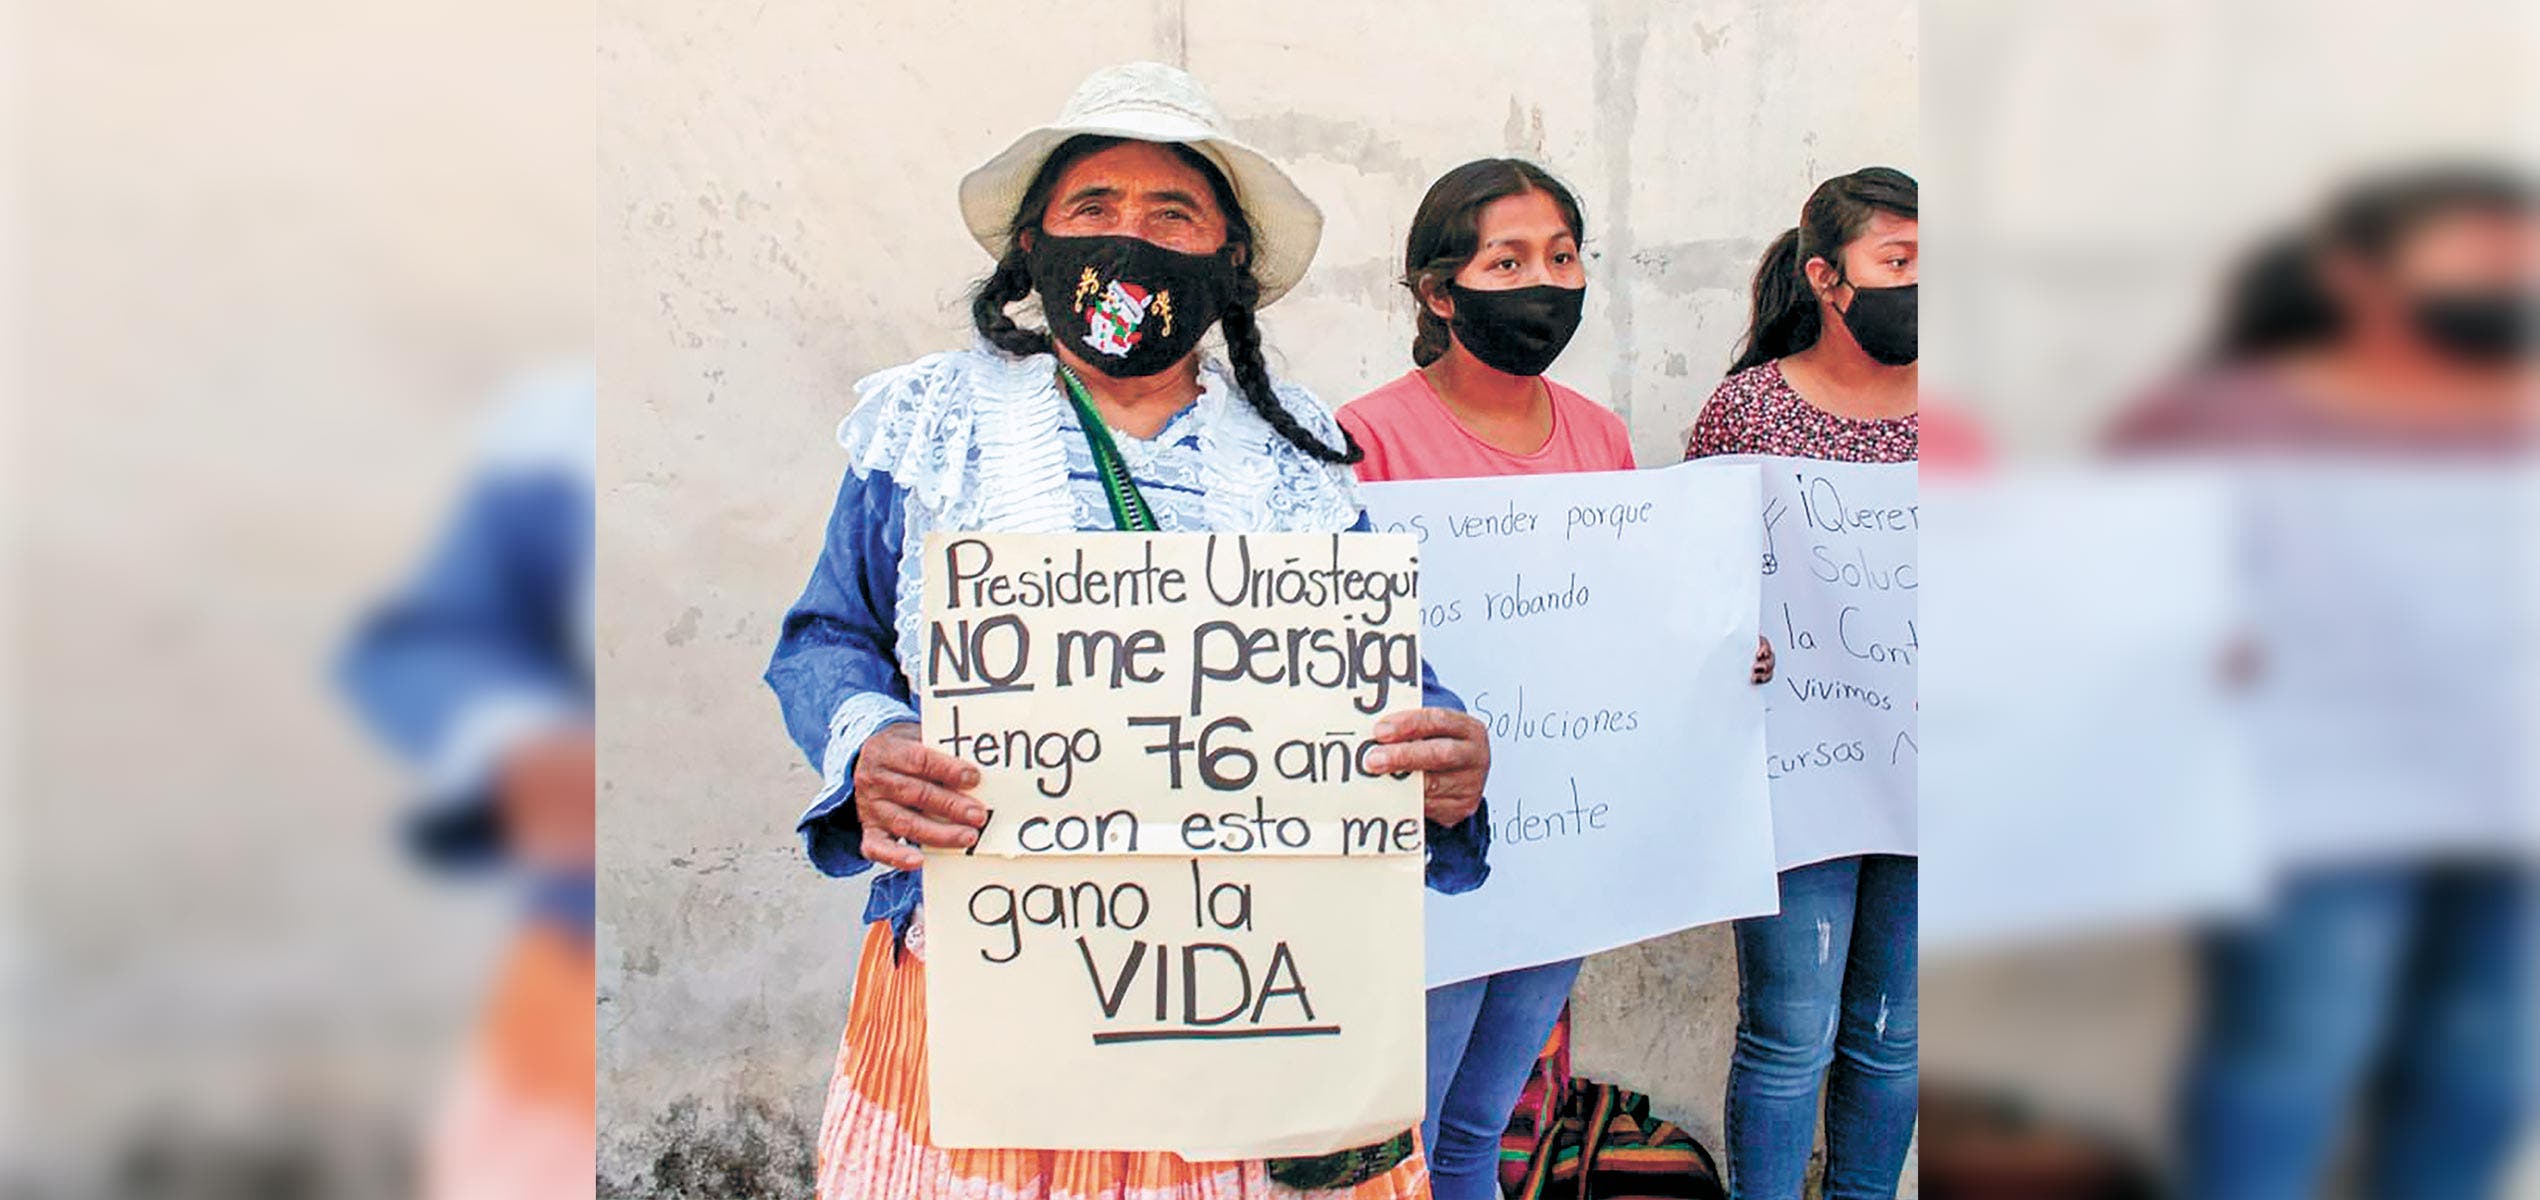 Presidente Urióstegui
NO me persiga
tengo 76 años
y con esto me
gano la
VIDA
vender porque
robando
Soluciones
¡Querem
Soluc
la Cont
Vivimos